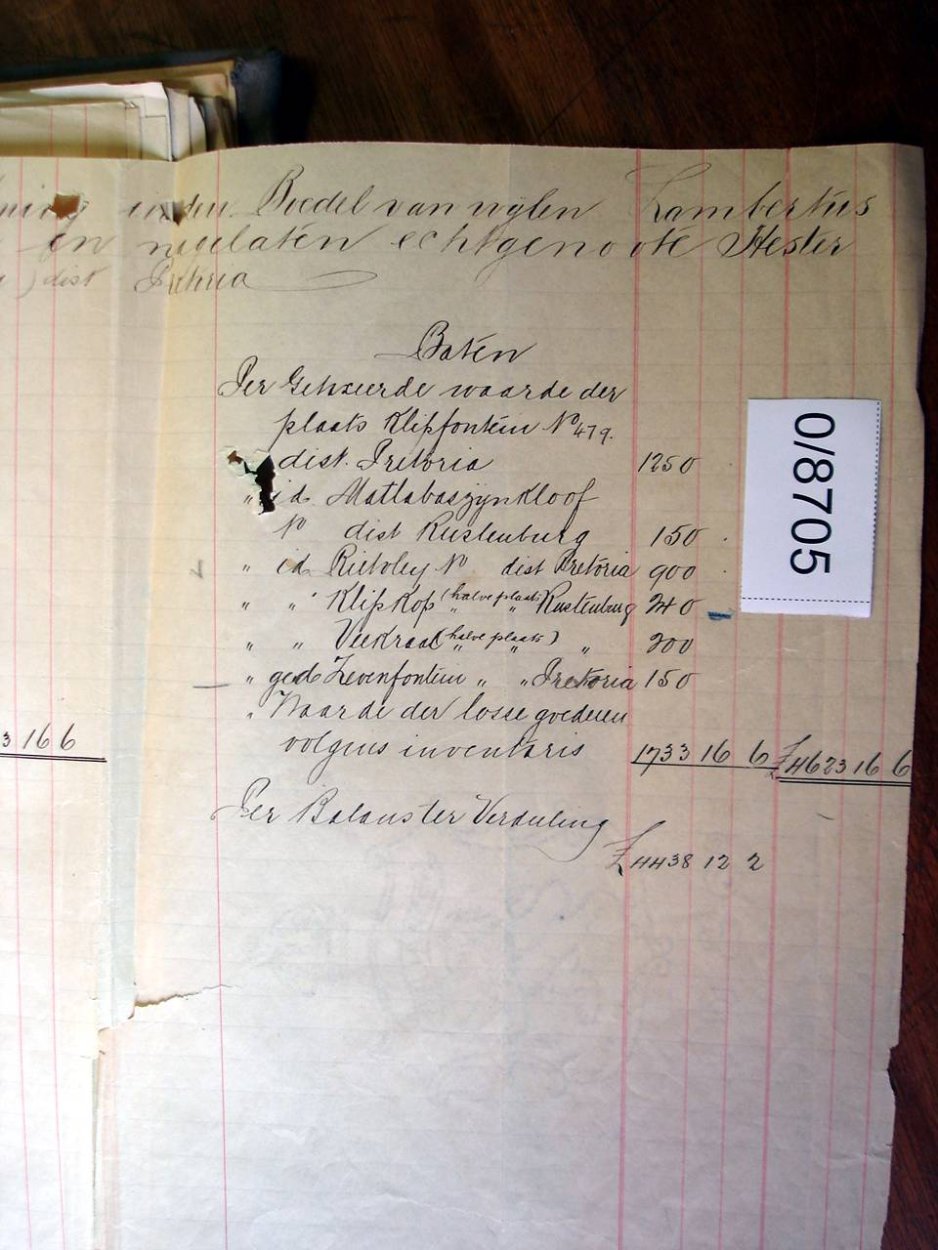 in den Boedel van wylen Lambertus
en nagelaten echtgenoote Hester
dist Pretoria
Baten
Per Getaxeerde waarde der
plaats Klipfontein No 479.
dist. Pretoria 1250
" id. Matlabaszynkloof
No dist Rustenburg 150
" id Rietvley No dist Pretoria 900
" " Klipkop (halve plaats) " Rustenburg 240
" " Veekraal (halve plaats) " 200
" ged. Zevenfontein " " Pretoria 150
" Waarde der losse goederen
3 16 6
volgens inventaris 1733 16 6 £4623 16 6
Per Balans ter Verdeling
£4438 12 2
0/8705